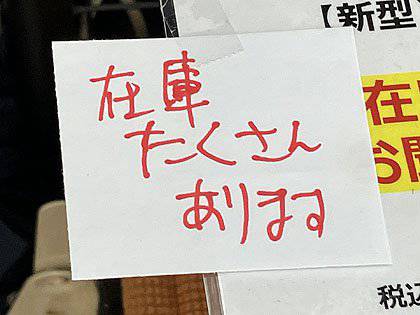 在庫
たくさん
あります
【新型
在
お
税込